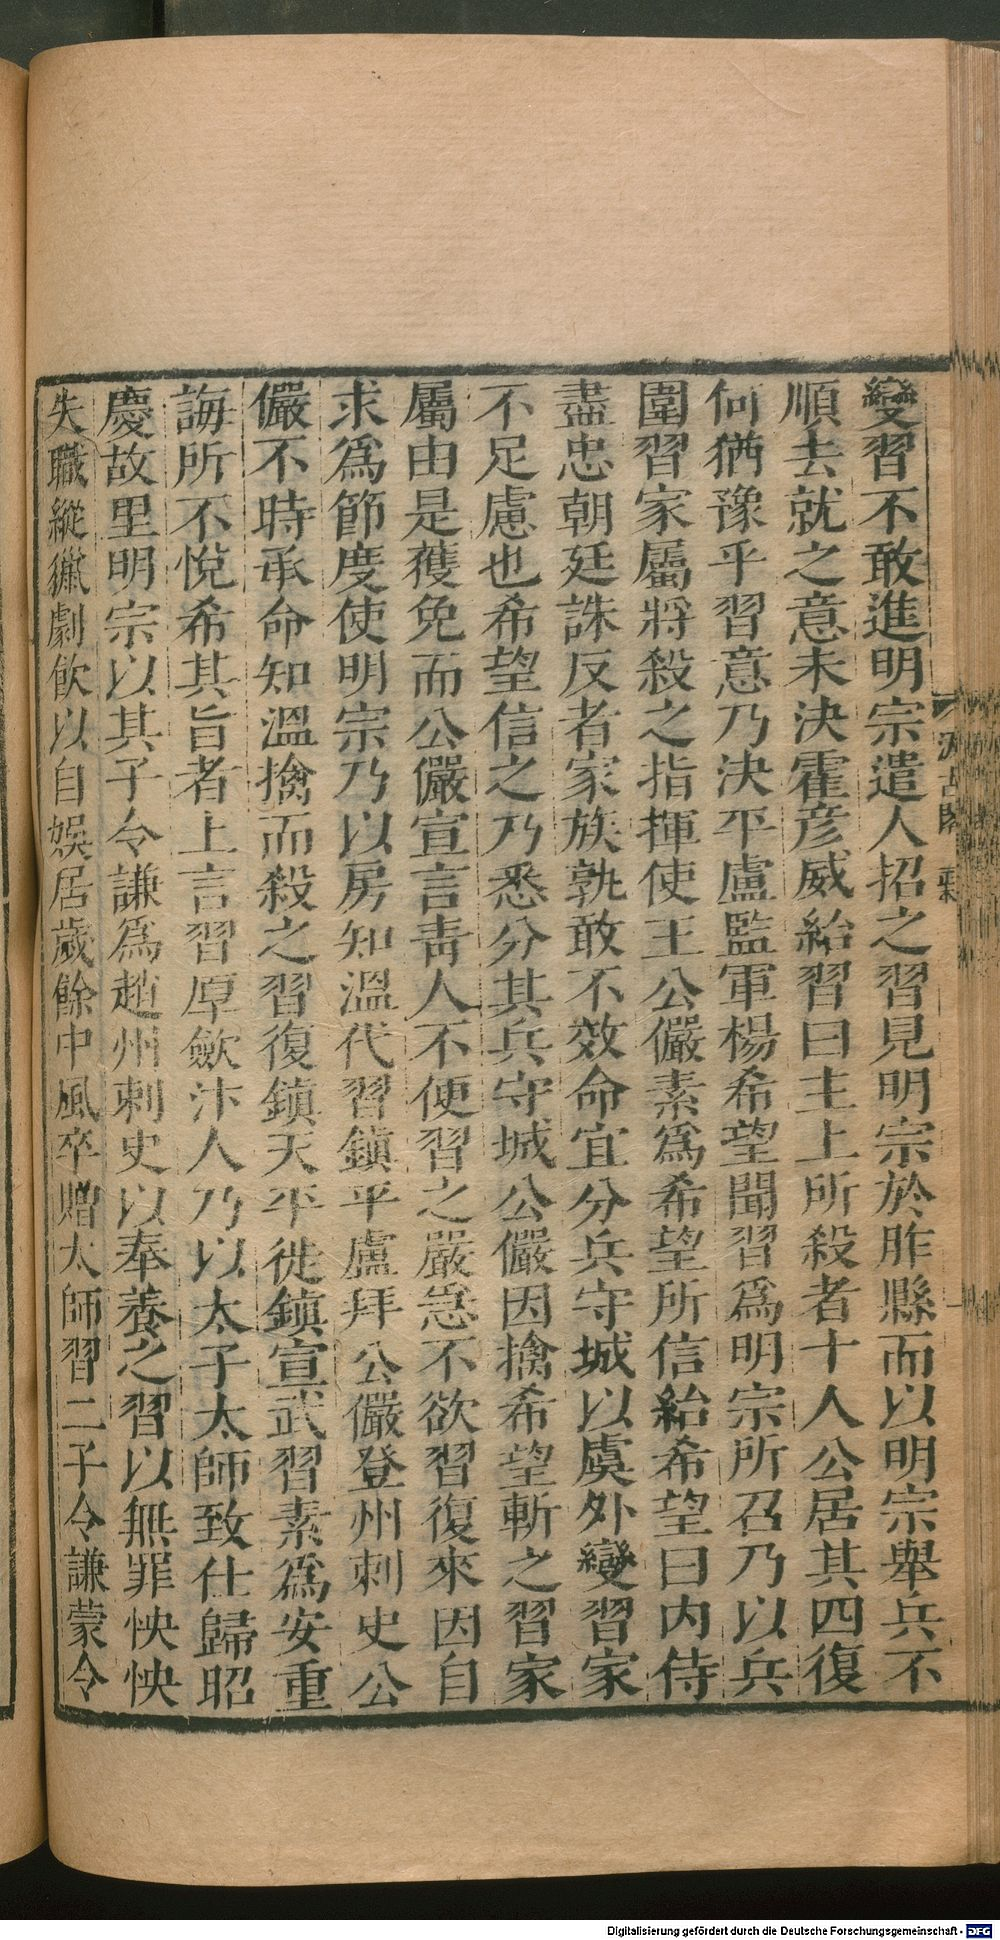 變習不敢進明宗遣人招之習見明宗於胙縣而以明宗舉兵不
順去就之意未決霍彥威紿習曰主上所殺者十人公居其四復
何猶豫乎習意乃決平盧監軍楊希望聞習爲明宗所召乃以兵
圍習家屬將殺之指揮使王公儼素爲希望所信紿希望曰内侍
盡忠朝廷誅反者家族孰敢不效命宜分兵守城以虞外變習家
不足慮也希望信之乃悉分其兵守城公儼因擒希望斬之習家
屬由是獲免而公儼宣言青人不便習之嚴急不欲習復來因自
求爲節度使明宗乃以房知溫代習鎮平盧拜公儼登州刺史公
儼不時承命知溫擒而殺之習復鎮天平徙鎮宣武習素爲安重
誨所不悅希其旨者上言習厚歛汴人乃以太子太師致仕歸昭
慶故里明宗以其子令謙爲趙州刺史以奉養之習以無罪怏怏
失職縱獵劇飲以自娛居歲餘中風卒贈太師習二子令謙蒙令
汲古閣
Digitalisierung gefördert durch die Deutsche Forschungsgemeinschaft - DFG